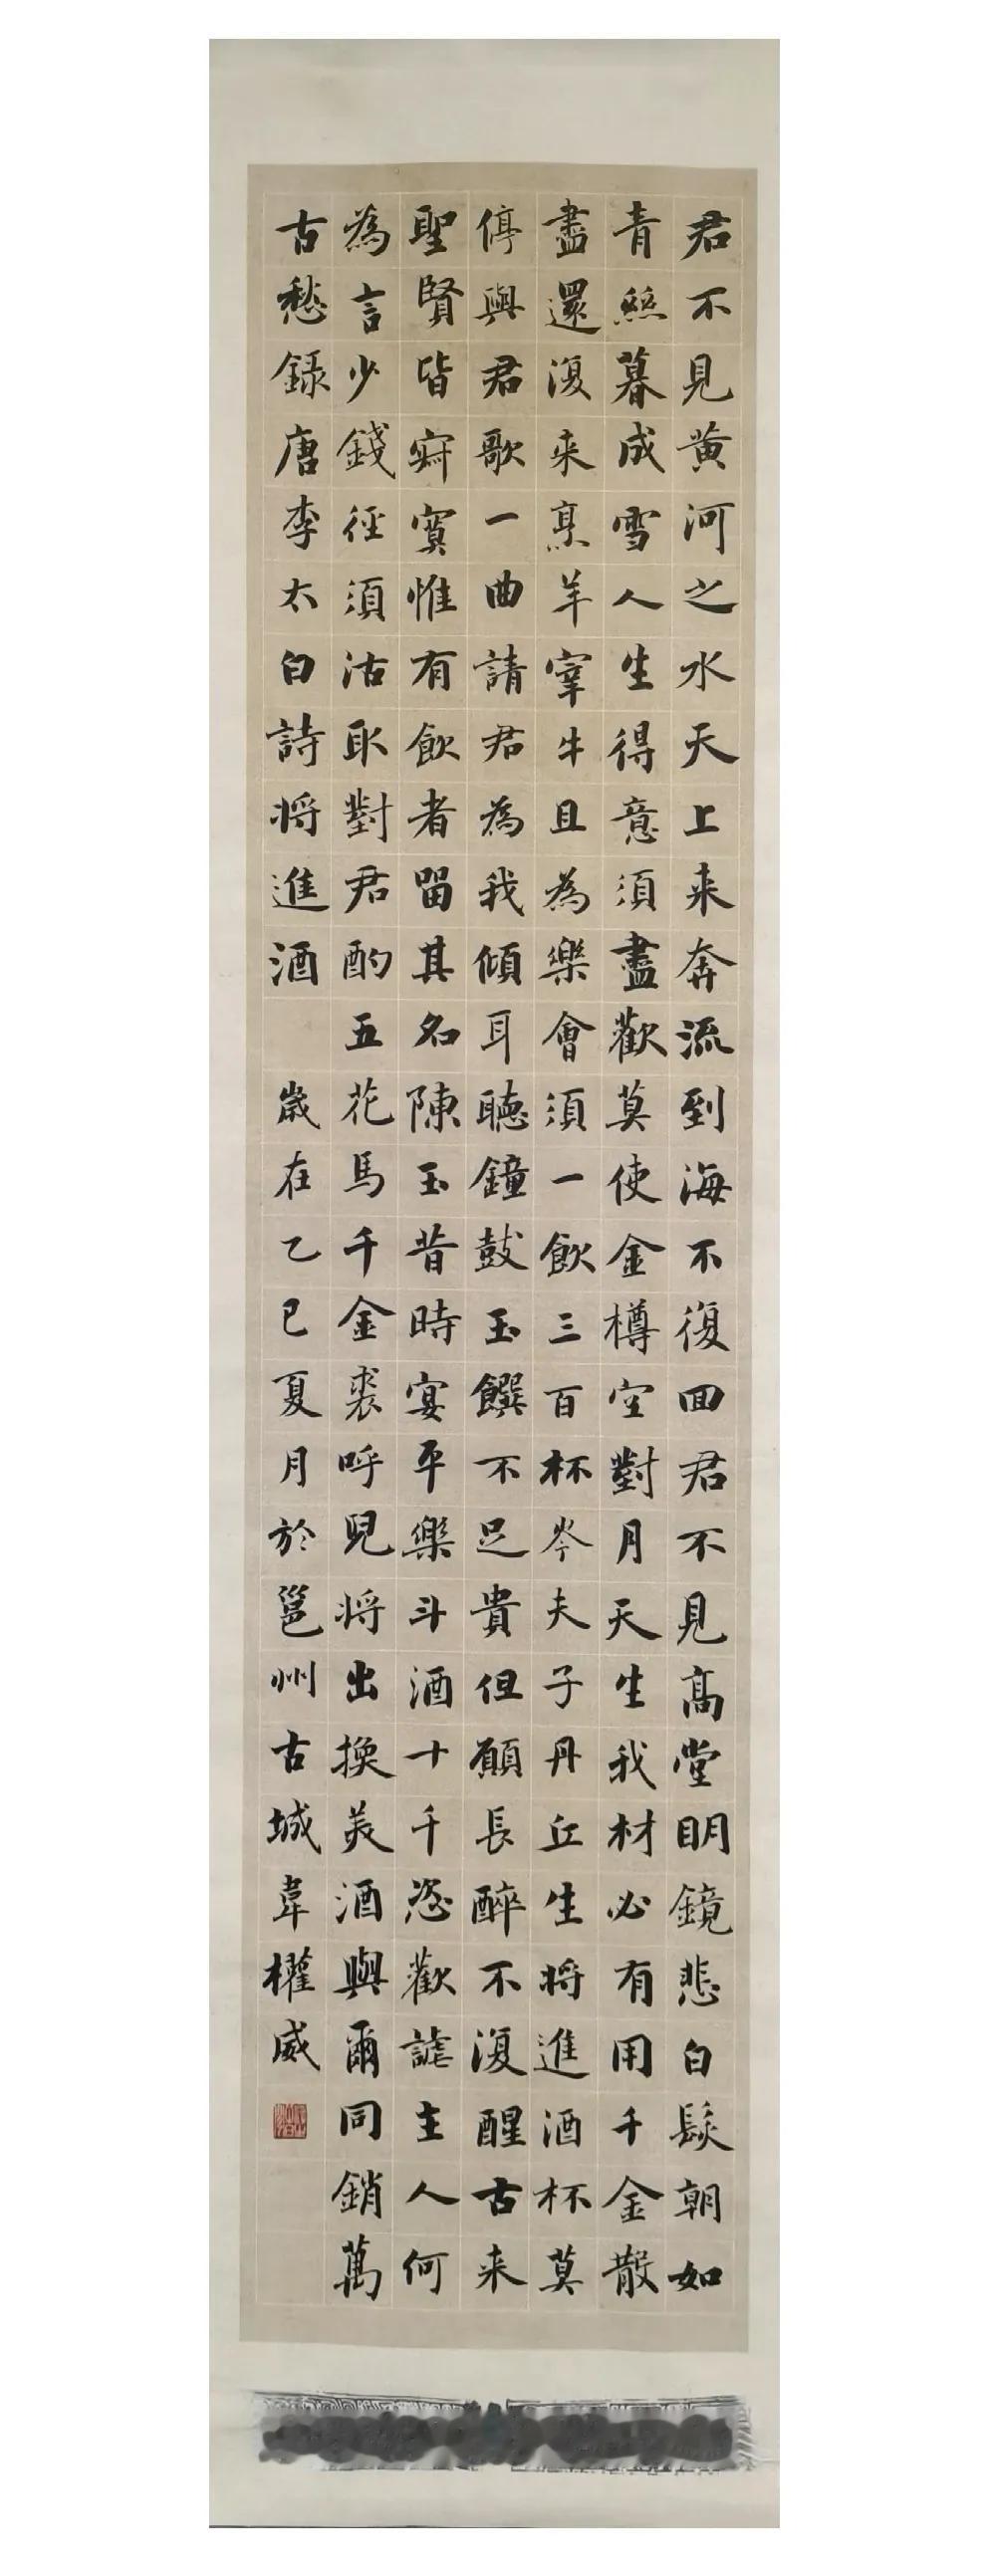 君不見黄河之水天上来奔流到海不復回君不見高堂明鏡悲白髮朝如
青絲暮成雪人生得意須盡歡莫使金樽空對月天生我材必有用千金散
盡還復来烹羊宰牛且為樂會須一飲三百杯岑夫子丹丘生将進酒杯莫
停與君歌一曲請君為我傾耳聴鐘鼓玉饌不足貴但願長醉不復醒古来
聖賢皆寂寞惟有飲者留其名陳王昔時宴平樂斗酒十千恣歡謔主人何
為言少錢徑須沽取對君酌五花馬千金裘呼兒将出換美酒與爾同銷萬
古愁錄唐李太白詩将進酒 歲在乙巳夏月於邕州古城韋權威